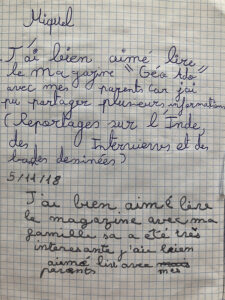 Miquel
J'ai bien aimé lire
le magazine "Géo Ado"
avec mes parents car j'ai
pu partager plusieurs informations
(Reportages sur l'Inde,
des Interviewes et des
bandes dessinées)
5/11/18
J'ai bien aimé lire
le magazine avec ma
famille sa a été très
interesante j'ai bien
aiemé lire avec mes
parents